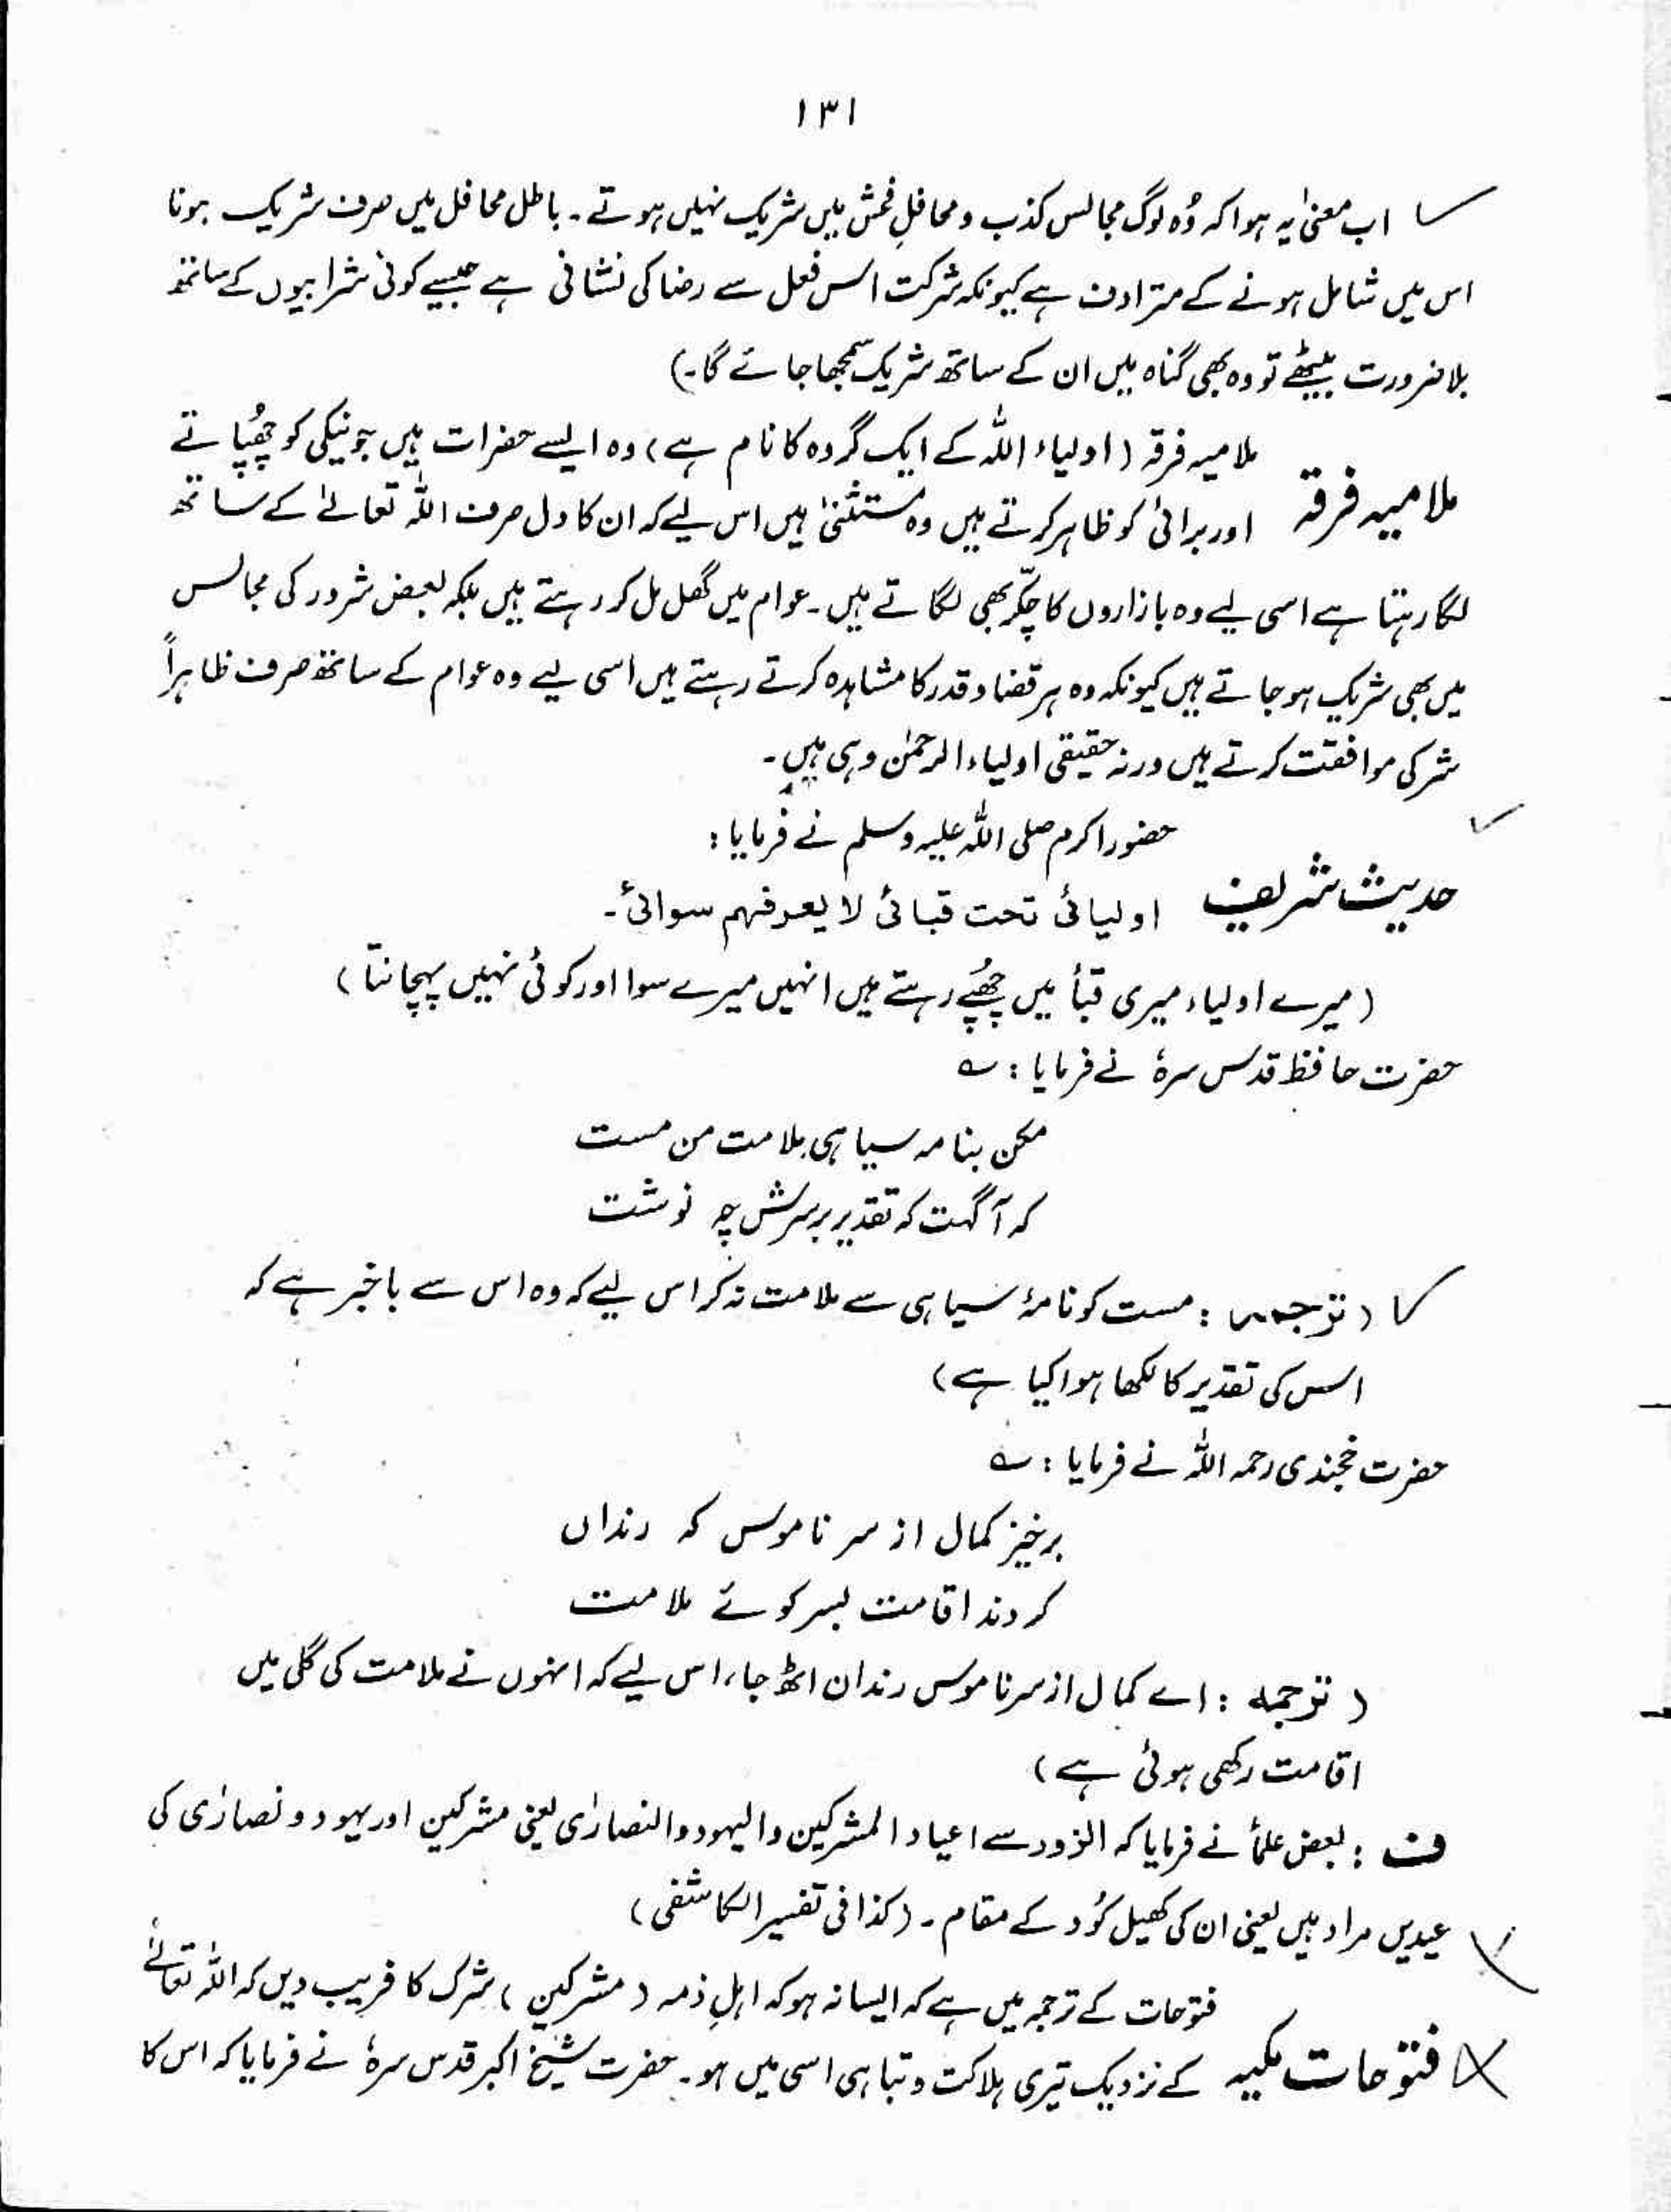 ۱۳۱
اب معنیٰ یہ ہوا کہ وُہ لوگ مجالس کذب و محافلِ فحش میں شریک نہیں ہوتے۔ باطل محافل میں صرف شریک ہونا
اس میں شامل ہونے کے مترادف ہے کیونکہ شرکت اس فعل سے رضا کی نشانی ہے جیسے کوئی شرابیوں کے ساتھ
بلا ضرورت بیٹھے تو وہ بھی گناہ میں ان کے ساتھ شریک سمجھا جائے گا۔)
ملامیہ فرقہ (اولیاء اللہ کے ایک گروہ کا نام ہے) وہ ایسے حضرات ہیں جو نیکی کو چھُپاتے
ملامیہ فرقہ
اور برائی کو ظاہر کرتے ہیں وہ مستثنیٰ ہیں اس لیے کہ ان کا دل صرف اللہ تعالےٰ کے ساتھ
لگا رہتا ہے اسی لیے وہ بازاروں کا چکّر بھی لگاتے ہیں۔ عوام میں گھل مل کر رہتے ہیں بلکہ بعض شرور کی مجالس
میں بھی شریک ہو جاتے ہیں کیونکہ وہ ہر قضا و قدر کا مشاہدہ کرتے رہتے ہیں اسی لیے وہ عوام کے ساتھ صرف ظاہراً
شر کی موافقت کرتے ہیں ورنہ حقیقی اولیاء الرحمٰن وہی ہیں۔
حضور اکرم صلی اللہ علیہ وسلم نے فرمایا :
حدیث شریف
اولیائی تحت قبائی لا یعرفہم سوائی۔
(میرے اولیاء میری قبأ میں چھُپے رہتے ہیں انہیں میرے سوا اور کوئی نہیں پہچانتا)
حضرت حافظ قدس سرہٗ نے فرمایا : ؎
مکن بنامہ سیاہی ملامت من مست
کہ آگہت کہ تقدیر بر سرش چہ نوشت
(ترجمہ : مست کو نامۂ سیاہی سے ملامت نہ کر اس لیے کہ وہ اس سے باخبر ہے کہ
اس کی تقدیر کا لکھا ہوا کیا ہے)
حضرت خجندی رحمہ اللہ نے فرمایا : ؎
برخیز کمال از سر ناموس کہ رنداں
کردند اقامت بسر کوئے ملامت
(ترجمہ : اے کمال از سر ناموس رندان اٹھ جا، اس لیے کہ انہوں نے ملامت کی گلی میں
اقامت رکھی ہوئی ہے)
ف : بعض علمأ نے فرمایا کہ الزور سے اعیاد المشرکین والیہود والنصارٰی یعنی مشرکین اور یہود و نصارٰی کی
عیدیں مراد ہیں یعنی ان کی کھیل کُود کے مقام۔ (کذا فی تفسیر الکاشفی)
فتوحات کے ترجمہ میں ہے کہ ایسا نہ ہو کہ اہلِ ذمہ (مشرکین) شرک کا فریب دیں کہ اللہ تعالےٰ
فتوحات مکیہ
کے نزدیک تیری ہلاکت و تباہی اسی میں ہو۔ حضرت شیخ اکبر قدس سرہٗ نے فرمایا کہ اس کا